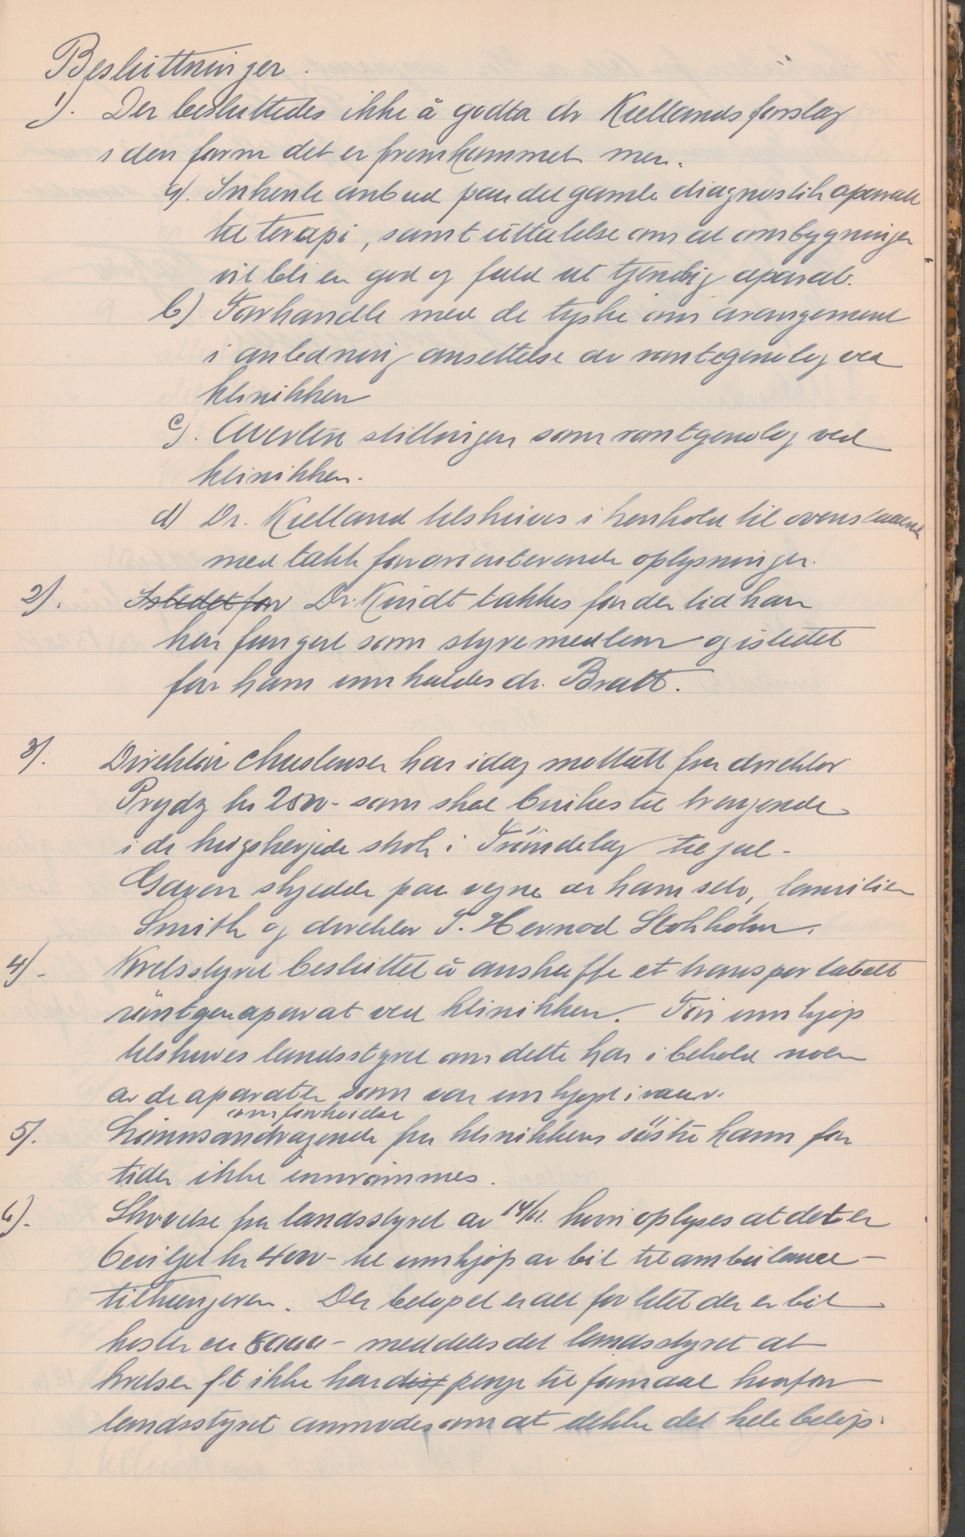 Besluttninger.
1). Der besluttedes ikke å godta dr Kiellands forslag
i den form det er fremkommet men.
a). Inhente anbud paa det gamle diagnostik aparat
til terapi, samt uttalelse om at ombygningen
vil bli en god og fuld ut tjenelig aparat.
b) Forhandle med de tyske om arangement
i anledning ansettelse av røntgenolog ved
klinikken
c). Avertere stillingen som røntgenolog ved
klinikken.
d) Dr. Kielland tilskrives i henhold til ovenstaaende
med takk for orienterende oplysninger.
2). Istedet for Dr. Kindt takkes for den tid han
har fungert som styremedlem og istedet
for ham innkaldes dr. Bratt.
3). Direktør har idag mottatt fra direktør
Prydz kr 2500- som skal brukes til trengende
i de krigsherjede strøk i Trøndelag til jul.
Gaven skjedde paa vegne av ham selv, familien
Smith og direktør T. Hernod Stokholm.
4). Kretsstyret besluttet å anskaffe et transportabelt
röntgenaparat ved klinikken. För innkjøp
tilskrives landsstyret om dette har i behold noen
av de aparater som var innkjøpt i vaar.
5). Lønnsandragende om forhøielse fra klinikkens søstre kann for
tiden ikke innrømmes.
6). Skrivelse fra landsstyret av 14/11. hvori oplyses at det er
bevilget kr 4000- til innkjøp av bil til ambulanse-
tilhengeren. Da beløpet er alt for litet da en bil
koster ca 8000- meddeles det landsstyret at
kretsen f.t ikke har disp penge til formaal hvorfor
landsstyret anmodes om at dekke det hele beløp.